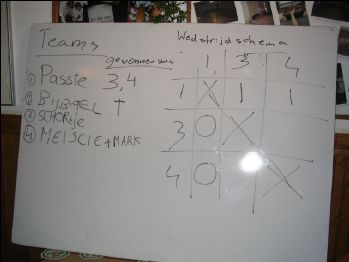 Teams
gewonnen van
① Passie 3,4
② BIJBAGEL †
③ SCHORTJE
④ MEISCIE + MARK
Wedstrijdschema
1 3 4
1 X 1 1
3 O X
4 O X